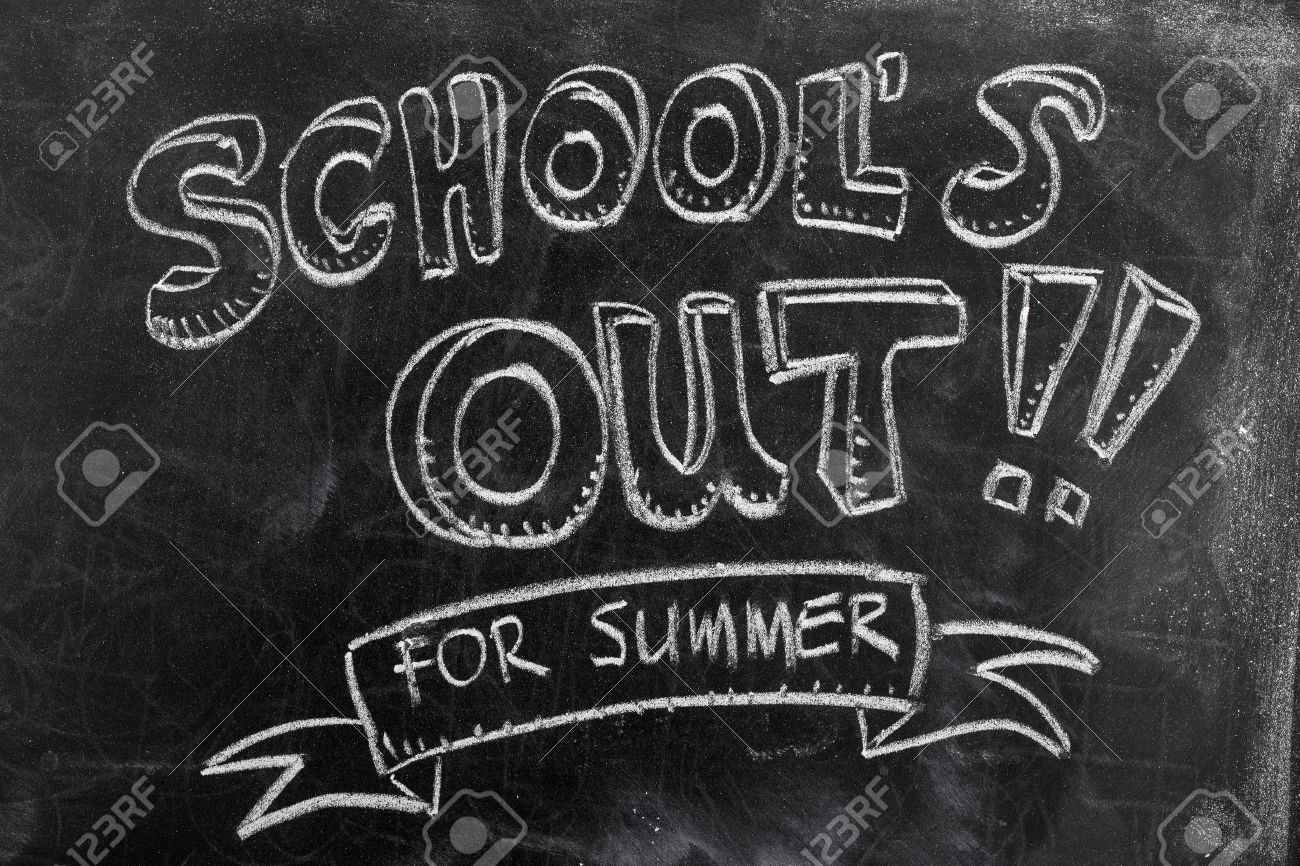 SCHOOL'S
OUT!!
FOR SUMMER
123RF
123RF
123RF
123RF
123RF
123RF